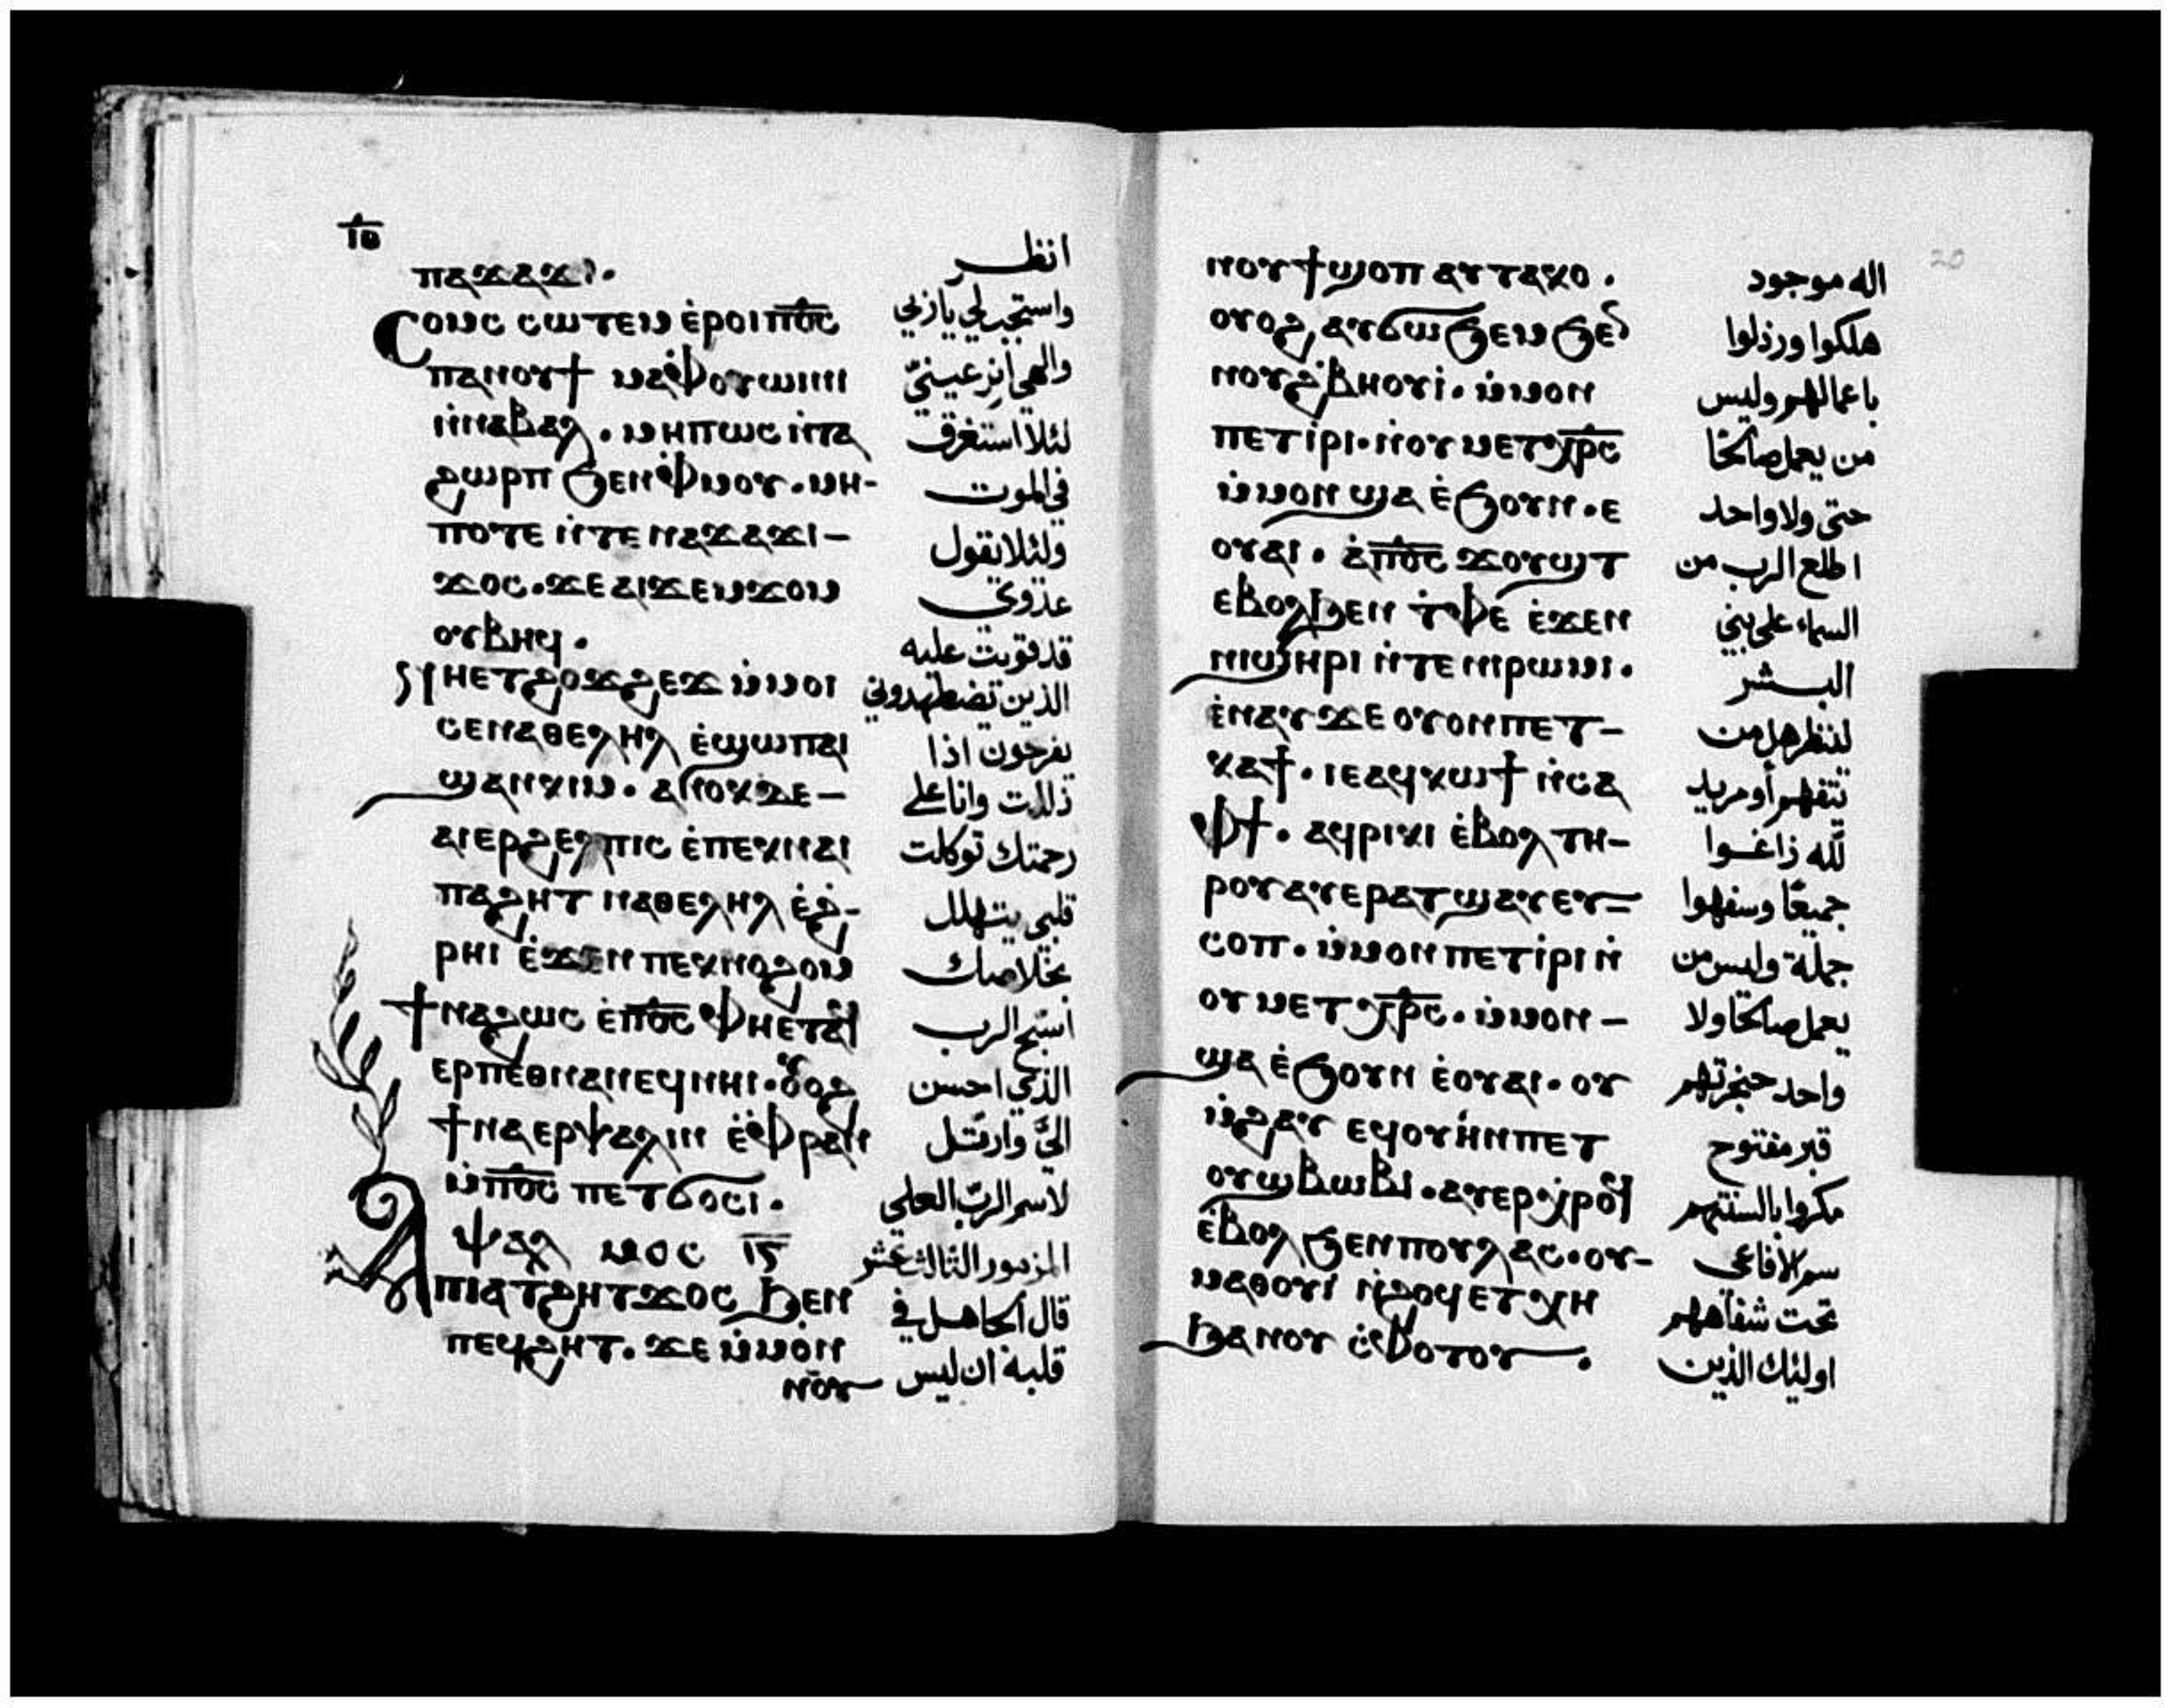 ⲓⲑ
ⲡⲁϫⲁϫⲓ.
Ⲥⲟⲙⲥ ⲥⲱⲧⲉⲙ ⲉ̀ⲣⲟⲓ ⲡ̅ⲟ̅ⲥ̅
ⲡⲁⲛⲟⲩϯ ⲙⲁⲫⲟⲩⲱⲓⲛⲓ
ⲛ̀ⲛⲁⲃⲁⲗ. ⲙⲏⲡⲱⲥ ⲛ̀ⲧⲁ
ϩⲱⲣⲡ ϧⲉⲛⲫⲙⲟⲩ. ⲙⲏ-
ⲡⲟⲧⲉ ⲛ̀ⲧⲉⲛⲁϫⲁϫⲓ-
ϫⲟⲥ. ϫⲉⲁⲓϫⲉⲙϫⲟⲙ
ⲟⲩⲃⲏϥ.
ⲛⲏⲉⲧϩⲟϫϩⲉϫ ⲙ̀ⲙⲟⲓ
ⲥⲉⲛⲁⲑⲉⲗⲏⲗ ⲉ̀ϣⲱⲡ ⲁⲓ
ϣⲁⲛⲕⲓⲙ. ⲁⲛⲟⲕ ⲇⲉ-
ⲁⲓⲉⲣϩⲉⲗⲡⲓⲥ ⲉ̀ⲡⲉⲕⲛⲁⲓ
ⲡⲁϩⲏⲧ ⲛⲁⲑⲉⲗⲏⲗ ⲉ̀ϩ-
ⲣⲏⲓ ⲉ̀ϫⲉⲛ ⲡⲉⲕⲛⲟϩⲟⲙ
ϯⲛⲁϩⲱⲥ ⲉ̀ⲡ̅ⲟ̅ⲥ̅ ⲫⲏⲉⲧⲁϥ
ⲉⲣⲡⲉⲑⲛⲁⲛⲉϥ ⲛⲏⲓ. ⲟⲩⲟϩ
ϯⲛⲁⲉⲣⲯⲁⲗⲓⲛ ⲉ̀ⲫⲣⲁⲛ
ⲙ̀ⲡ̅ⲟ̅ⲥ̅ ⲡⲉⲧϭⲟⲥⲓ.
ⲯⲁⲗ ⲙⲟⲥ ⲓⲅ
Ⲁ ⲡⲓⲁⲧϩⲏⲧ ϫⲟⲥ ϧⲉⲛ
ⲡⲉϥϩⲏⲧ. ϫⲉ ⲙ̀ⲙⲟⲛ
ⲛⲟⲩ
انظر
واستجب لي يا ربي
والهي انر عينيّ
لئلا استغرق
في الموت
ولئلا يقول
عدوي
قد قويت عليه
الذين تضطهدوني
يفرحون اذا
زللت وانا على
رحمتك توكلت
قلبي يتهلل
بخلاصك
أسبح الرب
الذي احسن
اليّ وارتّل
لاسم الربّ العلي
المزمور الثالث عشر
قال الجاهل في
قلبه ان ليس
20
ⲛⲟⲩϯ ϣⲟⲡ ⲁⲩⲧⲁⲕⲟ.
ⲟⲩⲟϩ ⲁⲩϭⲱϧⲉⲙ ϧⲉⲛ
ⲛⲟⲩϩⲃⲏⲟⲩⲓ̀. ⲙ̀ⲙⲟⲛ
ⲡⲉⲧⲓ̀ⲣⲓ. ⲛ̀ⲟⲩⲙⲉⲧⲭ̅ⲣ̅ⲥ̅
ⲙ̀ⲙⲟⲛ ϣⲁ ⲉ̀ϧⲟⲩⲛ. ⲉ
ⲟⲩⲁⲓ. ⲁ̀ⲡ̅ⲟ̅ⲥ̅ ϫⲟⲩϣⲧ
ⲉⲃⲟⲗϧⲉⲛ ⲧ̀ⲫⲉ ⲉ̀ϫⲉⲛ
ⲛⲓϣⲏⲣⲓ ⲛ̀ⲧⲉ ⲛⲓⲣⲱⲙⲓ.
ⲉ̀ⲛⲁⲩ ϫⲉ ⲟⲩⲟⲛ ⲡⲉⲧ-
ⲕⲁϯ. ⲓⲉ ⲁϥⲕⲱϯ ⲛ̀ⲥⲁ
ⲫϯ. ⲁϥⲣⲓⲕⲓ ⲉ̀ⲃⲟⲗ ⲧⲏ-
ⲣⲟⲩ ⲁⲩⲉⲣⲁⲧϣⲁⲩ ⲉⲩ=
ⲥⲟⲡ. ⲙ̀ⲙⲟⲛ ⲡⲉⲧⲓ̀ⲣⲓ ⲛ̀
ⲟⲩⲙⲉⲧⲭ̅ⲣ̅ⲥ̅. ⲙ̀ⲙⲟⲛ-
ϣⲁ ⲉ̀ϧⲟⲩⲛ ⲉ̀ⲟⲩⲁⲓ. ⲟⲩ
ⲙ̀ϩⲁⲩ ⲉϥⲟⲩⲏ̀ⲛ ⲡⲉⲧ
ⲟⲩϣⲃⲱⲃⲓ. ⲁⲩⲉⲣⲭⲣⲟϥ
ⲉ̀ⲃⲟⲗ ϧⲉⲛ ⲡⲟⲩⲗⲁⲥ. ⲟⲩ-
ⲙⲁⲑⲟⲩⲓ ⲛ̀ϩⲟϥ ⲉⲧⲭⲏ
ϧⲁ ⲛⲟⲩ ⲥ̀ⲫⲟⲧⲟⲩ.
اله موجود
هلكوا ورذلوا
باعمالهم وليس
من يعمل صالحًا
حتى ولا واحد
اطلع الرب من
السماء على بني
البشر
لينظر هل من
يتفهم أو مريد
للّه زاغوا
جميعًا وسفهوا
جملة وليس من
يعمل صالحًا ولا
واحد حنجرتهم
قبر مفتوح
مكروا بالسنتهم
سم الافاعي
تحت شفاههم
اوليك الذين